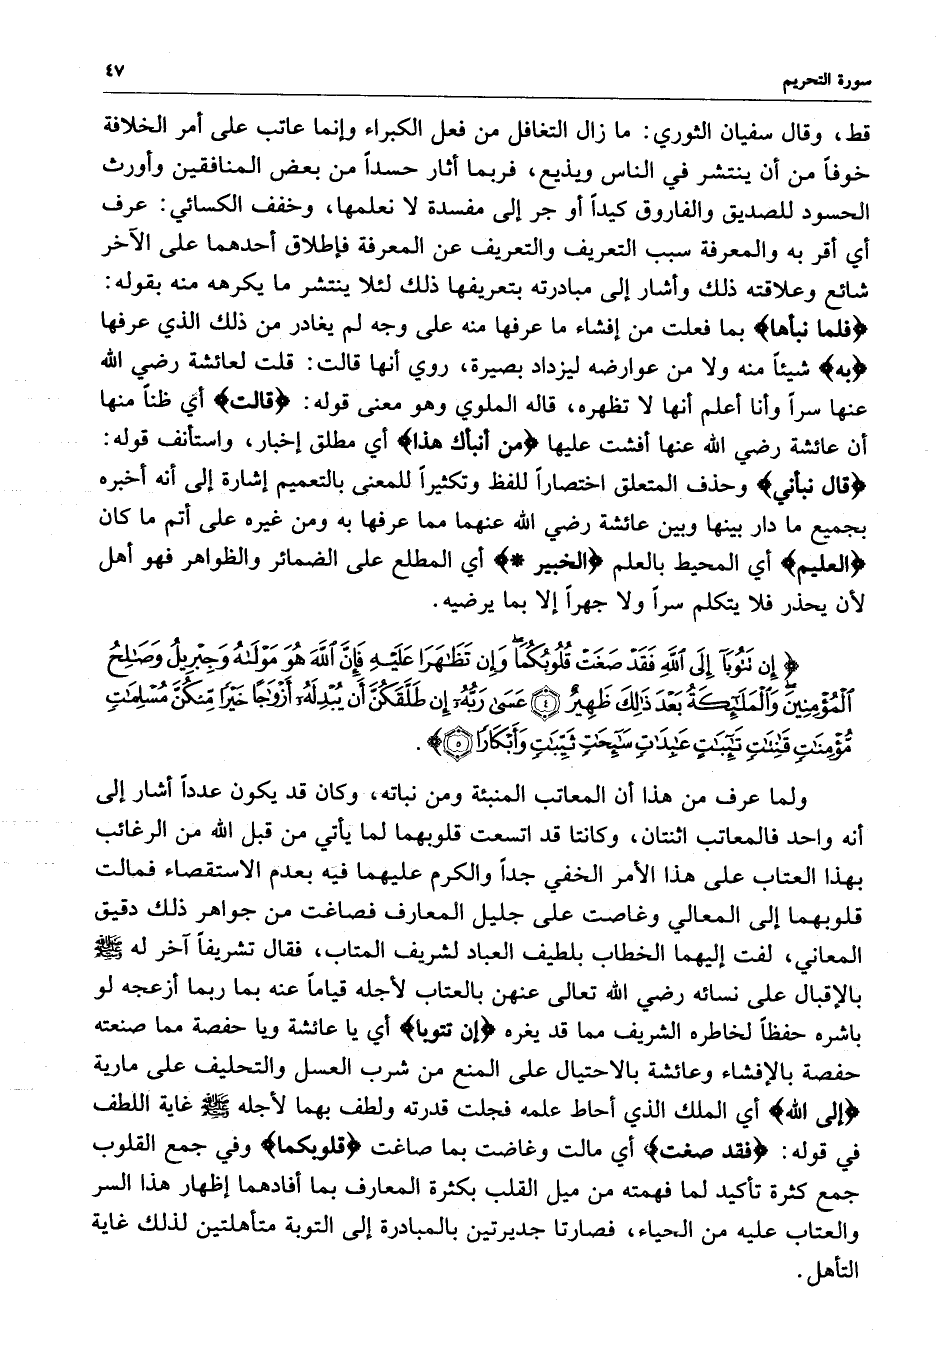 سورة التحريم ٤٧
قط، وقال سفيان الثوري: ما زال التغافل من فعل الكبراء وإنما عاتب على أمر الخلافة
خوفاً من أن ينتشر في الناس ويذيع، فربما أثار حسداً من بعض المنافقين وأورث
الحسود للصديق والفاروق كيداً أو جر إلى مفسدة لا نعلمها، وخفف الكسائي: عرف
أي أقر به والمعرفة سبب التعريف والتعريف عن المعرفة فإطلاق أحدهما على الآخر
شائع وعلاقته ذلك وأشار إلى مبادرته بتعريفها ذلك لئلا ينتشر ما يكرهه منه بقوله:
﴿فلما نبأها﴾ بما فعلت من إفشاء ما عرفها منه على وجه لم يغادر من ذلك الذي عرفها
﴿به﴾ شيئاً منه ولا من عوارضه ليزداد بصيرة، روي أنها قالت: قلت لعائشة رضي الله
عنها سراً وأنا أعلم أنها لا تظهره، قاله الملوي وهو معنى قوله: ﴿قالت﴾ أي ظناً منها
أن عائشة رضي الله عنها أفشت عليها ﴿من أنبأك هذا﴾ أي مطلق إخبار، واستأنف قوله:
﴿قال نبأني﴾ وحذف المتعلق اختصاراً للفظ وتكثيراً للمعنى بالتعميم إشارة إلى أنه أخبره
بجميع ما دار بينها وبين عائشة رضي الله عنهما مما عرفها به ومن غيره على أتم ما كان
﴿العليم﴾ أي المحيط بالعلم ﴿الخبير *﴾ أي المطلع على الضمائر والظواهر فهو أهل
لأن يحذر فلا يتكلم سراً ولا جهراً إلا بما يرضيه.
﴿ إِن تَتُوبَآ إِلَى ٱللَّهِ فَقَدْ صَغَتْ قُلُوبُكُمَا ۖ وَإِن تَظَٰهَرَا عَلَيْهِ فَإِنَّ ٱللَّهَ هُوَ مَوْلَىٰهُ وَجِبْرِيلُ وَصَٰلِحُ
ٱلْمُؤْمِنِينَ ۖ وَٱلْمَلَٰٓئِكَةُ بَعْدَ ذَٰلِكَ ظَهِيرٌ ٤ عَسَىٰ رَبُّهُۥٓ إِن طَلَّقَكُنَّ أَن يُبْدِلَهُۥٓ أَزْوَٰجًا خَيْرًا مِّنكُنَّ مُسْلِمَٰتٍ
مُّؤْمِنَٰتٍ قَٰنِتَٰتٍ تَٰٓئِبَٰتٍ عَٰبِدَٰتٍ سَٰٓئِحَٰتٍ ثَيِّبَٰتٍ وَأَبْكَارًا ٥ ﴾.
ولما عرف من هذا أن المعاتب المنبئة ومن نباته، وكان قد يكون عدداً أشار إلى
أنه واحد فالمعاتب اثنتان، وكانتا قد اتسعت قلوبهما لما يأتي من قبل الله من الرغائب
بهذا العتاب على هذا الأمر الخفي جداً والكرم عليهما فيه بعدم الاستقصاء فمالت
قلوبهما إلى المعالي وغاصت على جليل المعارف فصاغت من جواهر ذلك دقيق
المعاني، لفت إليهما الخطاب بلطيف العباد لشريف المتاب، فقال تشريفاً آخر له ﷺ
بالإقبال على نسائه رضي الله تعالى عنهن بالعتاب لأجله قياماً عنه بما ربما أزعجه لو
باشره حفظاً لخاطره الشريف مما قد يغره ﴿إن تتوبا﴾ أي يا عائشة ويا حفصة مما صنعته
حفصة بالإفشاء وعائشة بالاحتيال على المنع من شرب العسل والتحليف على مارية
﴿إلى الله﴾ أي الملك الذي أحاط علمه فجلت قدرته ولطف بهما لأجله ﷺ غاية اللطف
في قوله: ﴿فقد صغت﴾ أي مالت وغاضت بما صاغت ﴿قلوبكما﴾ وفي جمع القلوب
جمع كثرة تأكيد لما فهمته من ميل القلب بكثرة المعارف بما أفادهما إظهار هذا السر
والعتاب عليه من الحياء، فصارتا جديرتين بالمبادرة إلى التوبة متأهلتين لذلك غاية
التأهل.